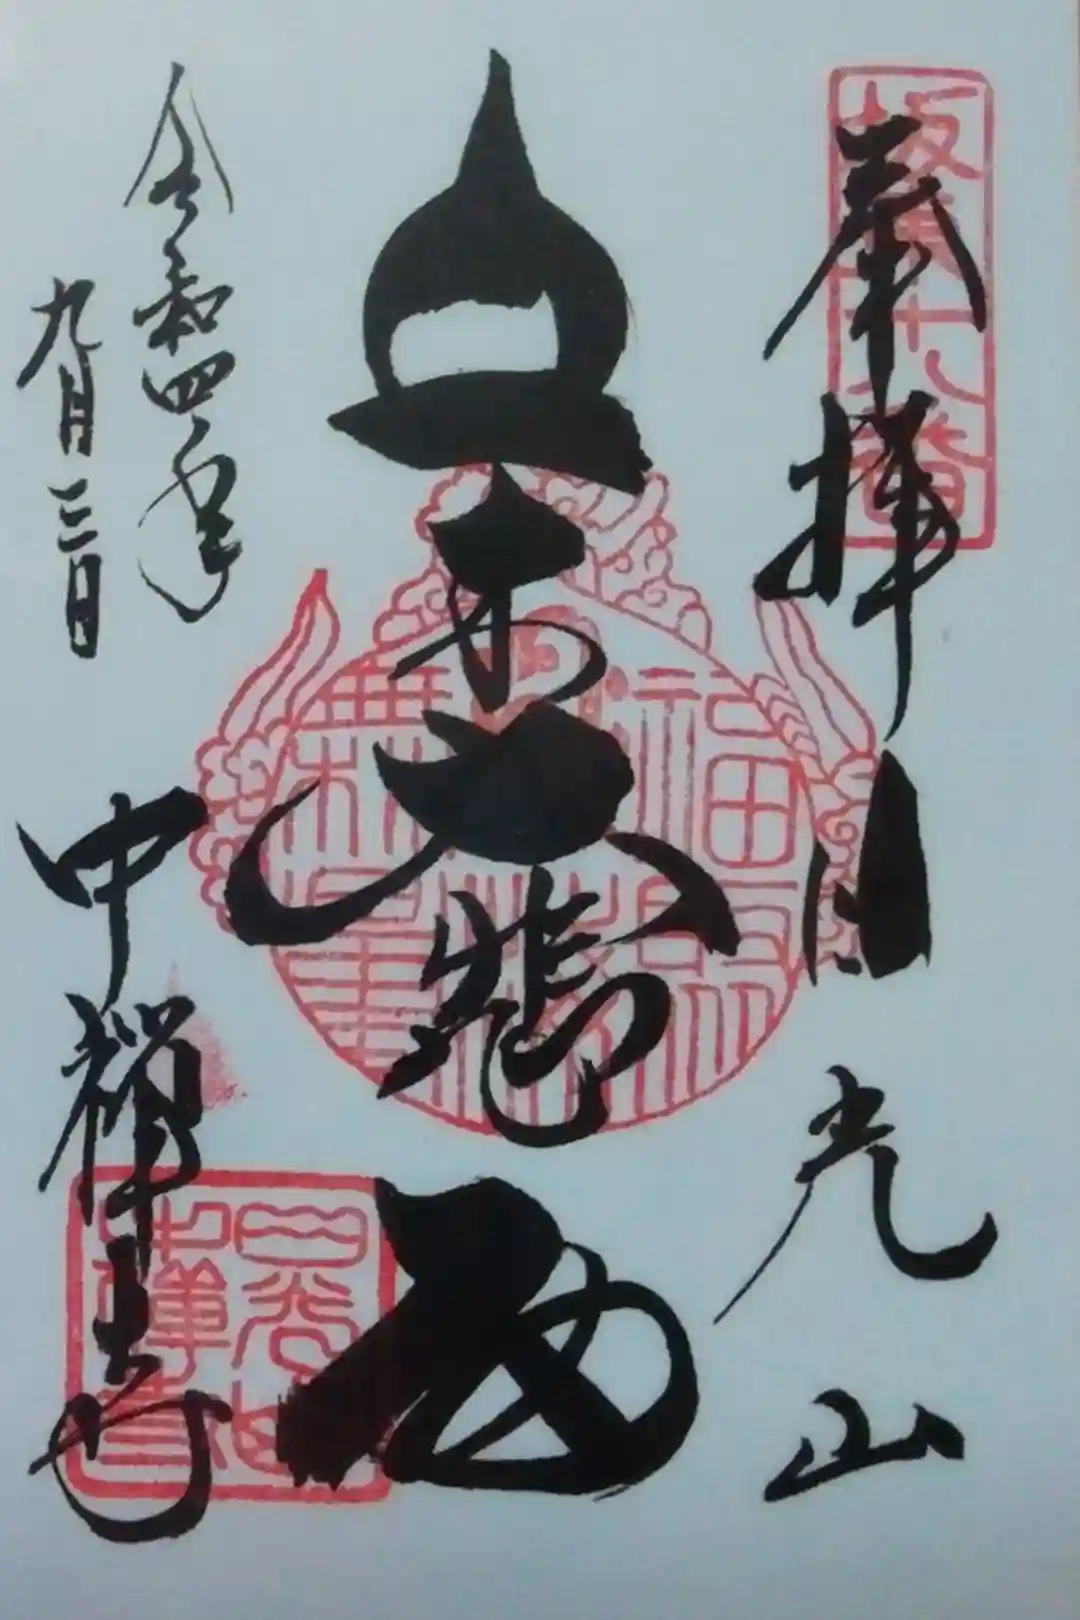 坂東十八番
奉拝 日光山
立木大悲
福聚海無量
令和四年
九月三日
中禅寺
日光山
中禅寺